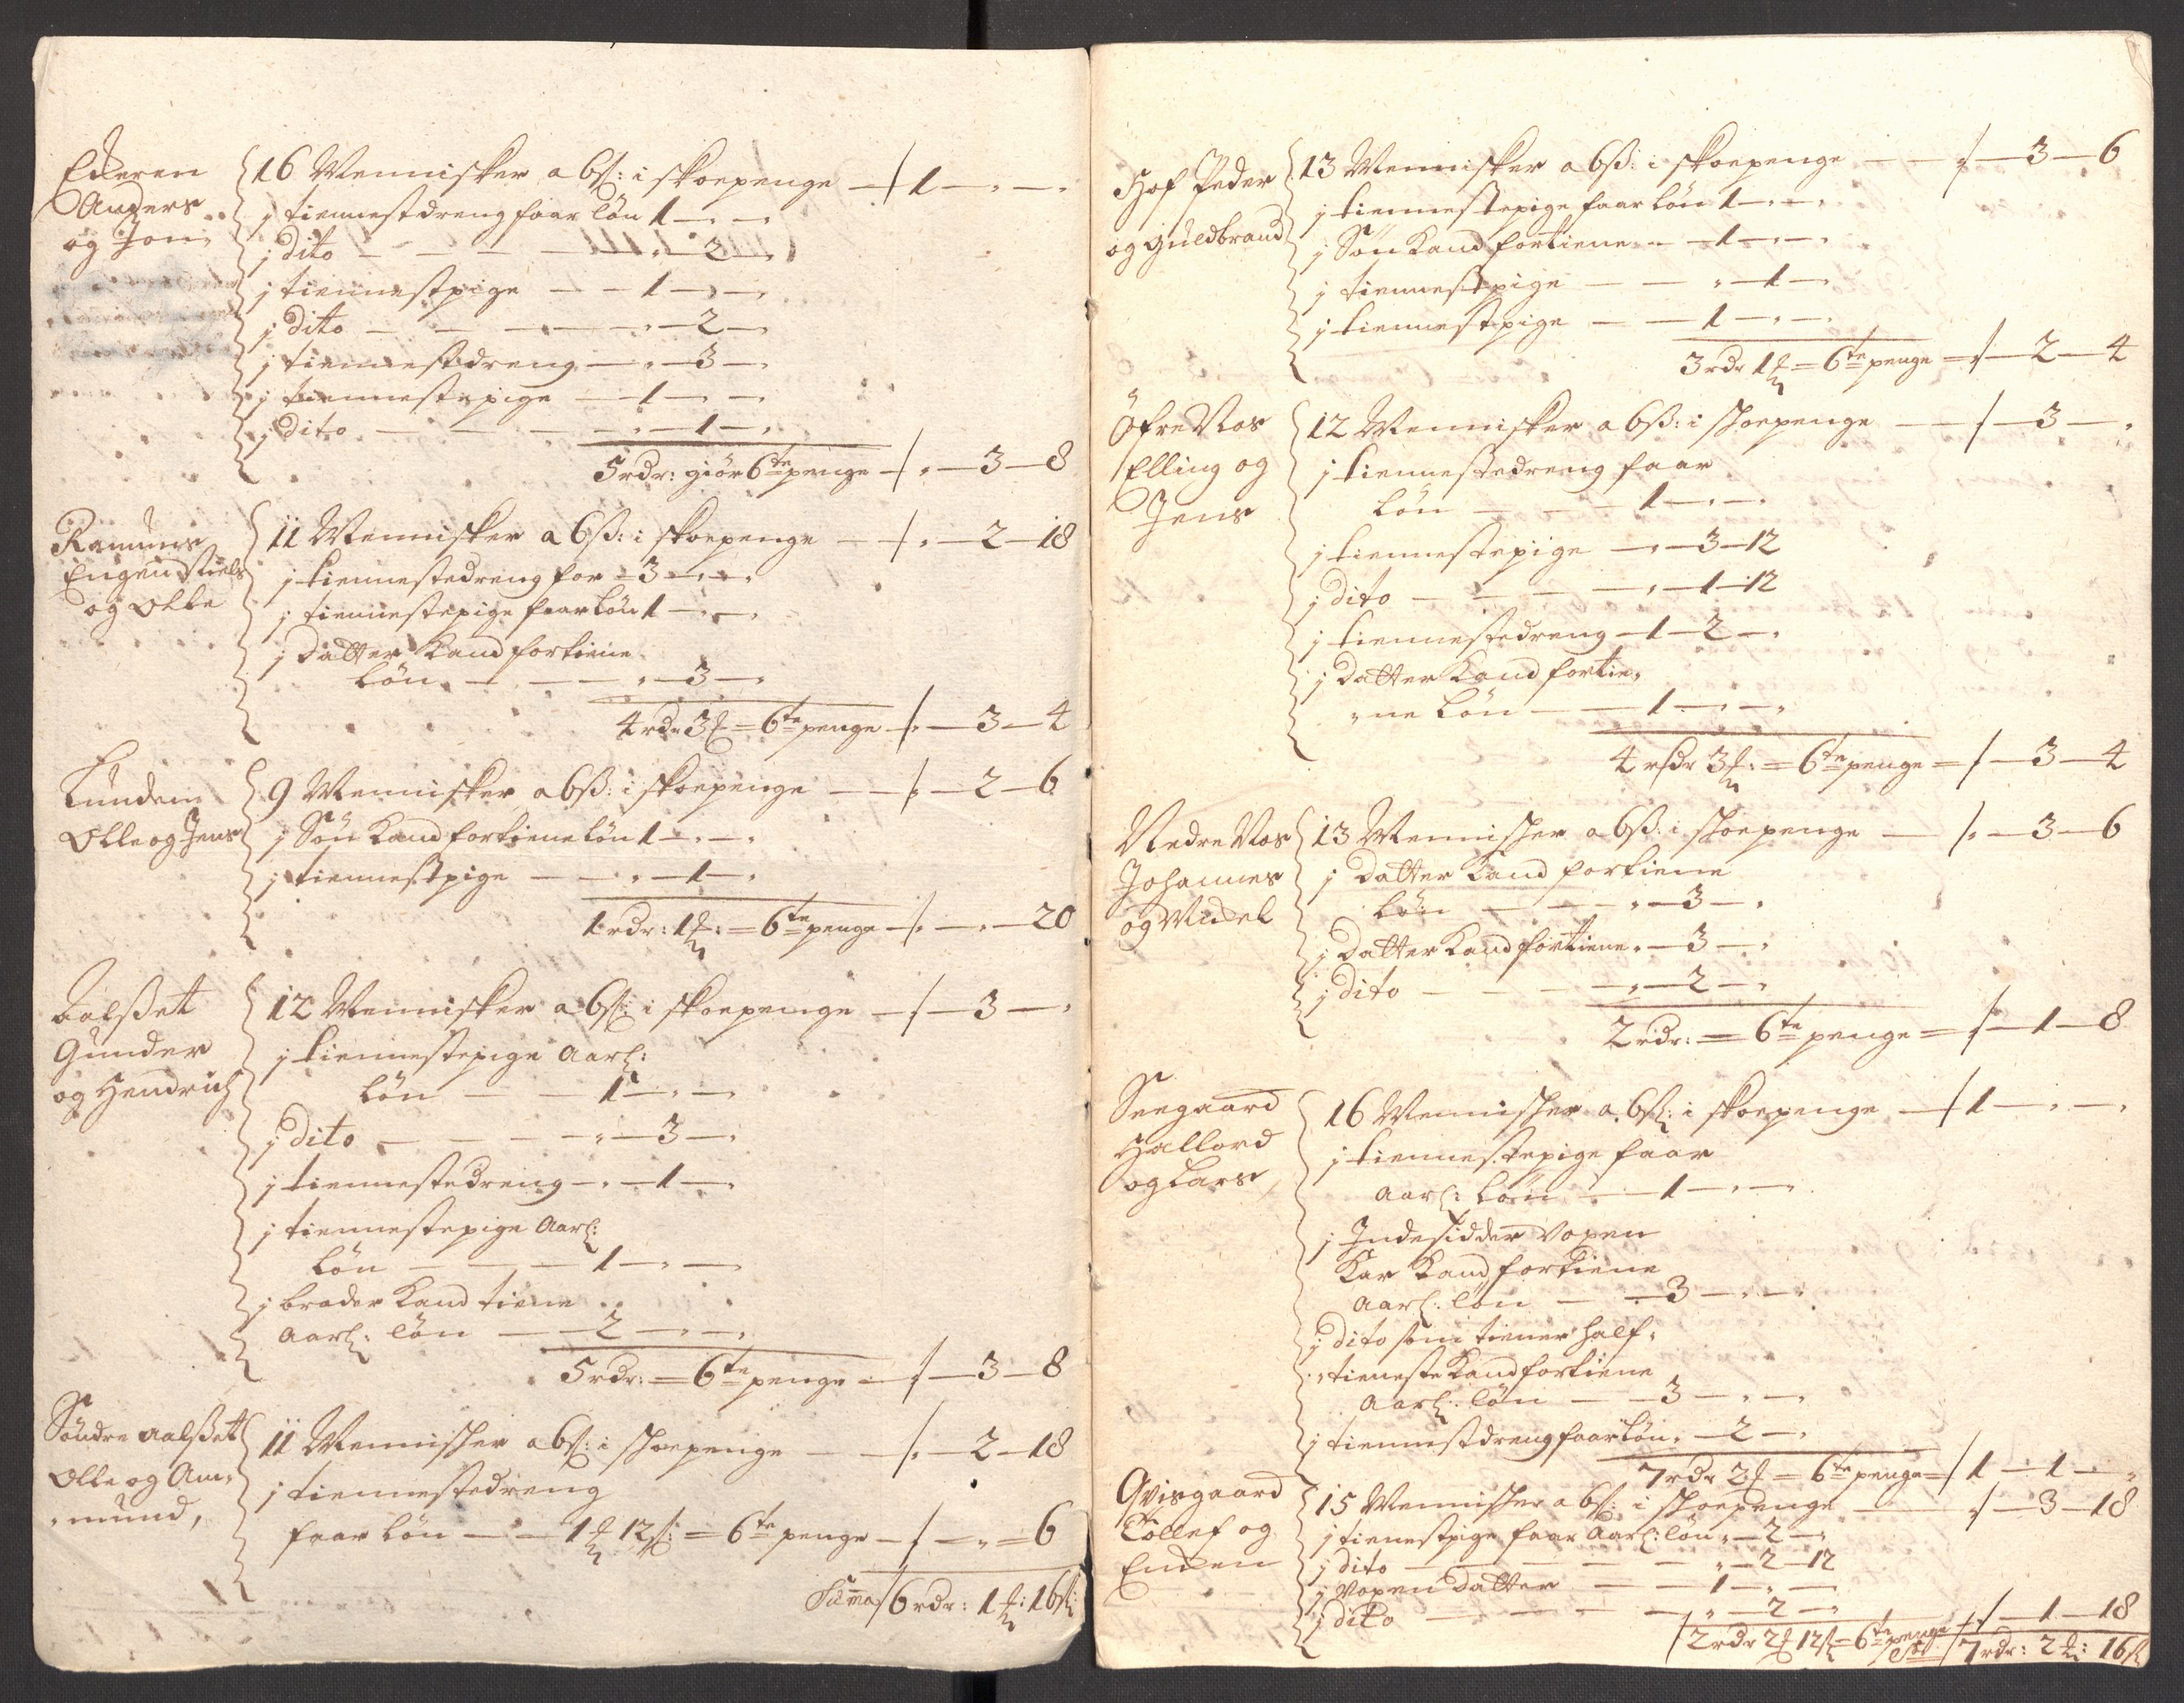 Ederen
Anders
og Joni
16 Mennisker a 6ß: i skoepenge — 1 — „ — „
j tiennestdreng faar løn 1 — „ — „
j dito — — — „ — 2 — „
j tiennestpige — — 1 — „ — „
j dito — — — „ — 2 — „
j tiennestdreng — „ — 3 — „
j tiennestepige — 1 — „ — „
j dito — — — „ — 1 — „
5 rdr: giör 6te penge — „ — 3 — 8
Engen
og Olle
11 Mennisker a 6ß: i skoepenge — „ — 2 — 18
j tiennestedreng for — 3 — „ — „
j tiennestepige faar løn 1 — „ — „
j datter kand fortiene
løn — — — „ — 3 — „
4 rdr 3 = 6te penge — „ — 3 — 4
Lunden
Olle og Jens
9 Mennisker a 6ß: i skoepenge — — 2 — 6
j Søn kand fortiene løn 1 — „ — „
j tiennestpige — — „ — 1 — „
1 rdr: 1 = 6te penge — „ — „ — 20
Gunder
og Hendrich
12 Mennisker a 6ß: i skoepenge — — 3 — „
j tiennestepige aarl:
løn — — 1 — „ — „
j dito — — — „ — 3 — „
j tiennestedreng — „ — 1 — „
j tiennestepige aarl:
løn — — — 1 — „ — „
j broder kand tiene
aarl: løn — 2 — „ — „
5 rdr: = 6te penge — — 3 — 8
Söndre Aalßet
Olle og Am„
„mund,
11 Mennisker a 6ß: i skoepenge — — 2 — 18
j tiennestedreng
faar løn — — 1 12ß: = 6te penge — — „ = 6
Suma 6 rdr: 1: 16ß:
Hof Peder
og Guldbrand
13 Mennisker a 6ß: i skoepenge — — — 3 — 6
j tiennestepige faar løn 1 — „ — „
j Søn kand fortiene — — 1 — „ — „
j tiennestpige — — „ — 1 — „
j tiennestpige — — 1 — „ — „
3 rdr 1 = 6te penge = — 2 — 4
Öfre Nos
Elling og
Jens
12 Mennisker a 6ß: i skoepenge — — — 3 — „
j tiennestedreng faar
løn — — — 1 — „ — „
j tiennestepige — „ — 3 — 12
j dito — — — „ — 1 — 12
j tiennestedreng — 1 — 2 — „
j datter kand fortie„
„ne løn — — 1 — „ — „
4 rdr 3: = 6te penge = — 3 — 4
Nedre Nos
Johannes
og Mickel
13 Mennisker a 6ß: i skoepenge — — 3 — 6
j datter kand fortiene
løn — — — „ — 3 — „
j datter kand fortiene „ — 3 — „
j dito — — — „ — 2 — „
2 rdr: = 6te penge = — 1 — 8
Seegaard
Hallord
og Lars
16 Mennisker a 6ß: i skoepenge — 1 — „ — „
j tiennestepige faar
aarl: løn — — 1 — „ — „
j Indesidder voxen
kar kand fortiene
aarl: løn — — 3 — „ — „
j dito som tiener half„
„tieneste kand fortiene
aarl: løn — — 3 — „ — „
j tiennestdreng faar løn „ — 2 — „
7 rdr 2 = 6te penge = 1 — 1 — „
Qvisgaard
Tollef og
15 Mennisker a 6ß: i skoepenge — — 3 — 18
j tienestpige faar aarl: løn „ — 2 — „
j dito — — — — „ — 2 — 12
j voxen datter — — 1 — „ — „
j dito — — — — „ — 2 — „
2 rdr 2 12ß = 6te penge — 1 — 18
7 rdr: 2: 16ß